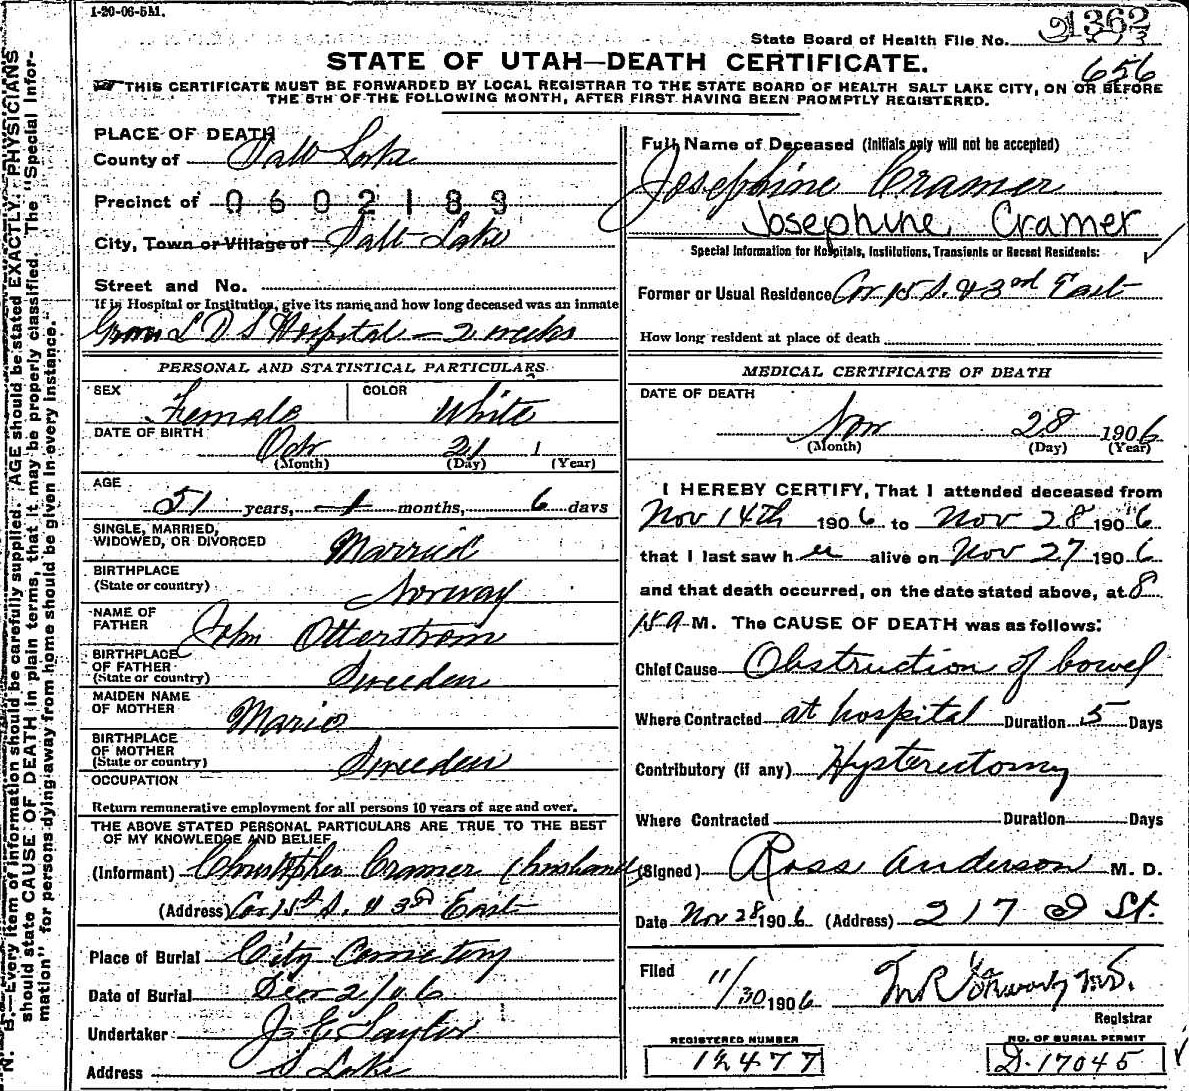 1-20-06-5M.
State Board of Health File No. 21362
656
STATE OF UTAH—DEATH CERTIFICATE.
THIS CERTIFICATE MUST BE FORWARDED BY LOCAL REGISTRAR TO THE STATE BOARD OF HEALTH SALT LAKE CITY, ON OR BEFORE
THE 5TH OF THE FOLLOWING MONTH, AFTER FIRST HAVING BEEN PROMPTLY REGISTERED.
PLACE OF DEATH
County of Salt Lake
Precinct of 0602183
City, Town or Village of Salt Lake
Street and No.
If in Hospital or Institution, give its name and how long deceased was an inmate
L D S Hospital — 2 weeks
PERSONAL AND STATISTICAL PARTICULARS.
SEX Female COLOR White
DATE OF BIRTH Oct 21 1
(Month) (Day) (Year)
AGE
51 years, 1 months, 6 days
SINGLE, MARRIED,
WIDOWED, OR DIVORCED Married
BIRTHPLACE
(State or country) Norway
NAME OF
FATHER John Otterstrom
BIRTHPLACE
OF FATHER
(State or country) Sweeden
MAIDEN NAME
OF MOTHER Marie
BIRTHPLACE
OF MOTHER
(State or country) Sweeden
OCCUPATION
Return remunerative employment for all persons 10 years of age and over.
THE ABOVE STATED PERSONAL PARTICULARS ARE TRUE TO THE BEST
OF MY KNOWLEDGE AND BELIEF
(Informant) Christopher Cramer (husband)
(Address) Cor 15th S. & 3rd East
Place of Burial City Cemetery
Date of Burial Dec 2/06
Undertaker J. E. Taylor
Address S Lake
Full Name of Deceased (Initials only will not be accepted)
Josephine Cramer
Josephine Cramer
Special Information for Hospitals, Institutions, Transients or Recent Residents:
Former or Usual Residence Cor 15 S. & 3rd East
How long resident at place of death
MEDICAL CERTIFICATE OF DEATH
DATE OF DEATH
Nov 28 1906
(Month) (Day) (Year)
I HEREBY CERTIFY, That I attended deceased from
Nov 14th 1906 to Nov 28 1906
that I last saw her alive on Nov 27 1906
and that death occurred, on the date stated above, at 8
15 A M. The CAUSE OF DEATH was as follows:
Chief Cause Obstruction of bowel
Where Contracted at hospital Duration 5 Days
Contributory (if any) Hysterectomy
Where Contracted Duration Days
(Signed) Ross Anderson M. D.
Date Nov 28 1906 (Address) 217 D St.
Filed 11/30 1906
Registrar
REGISTERED NUMBER
12477
NO. OF BURIAL PERMIT
D-17045
N. B.—Every item of information should be carefully supplied. AGE should be stated EXACTLY. PHYSICIANS
should state CAUSE OF DEATH in plain terms, that it may be properly classified. The "Special Infor-
mation" for persons dying away from home should be given in every instance.